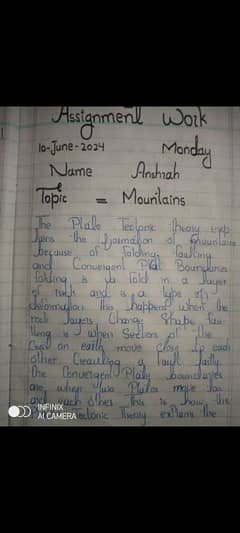 Assignment Work
10-June-2024 Monday
Name Anshrah
Topic = Mountains
The Plate Tectonic theory exp
lains the formation of mountains
because of folding, faulting
and Convergent Plat Boundaries
folding is a fold in a layer
of rock and is a type of
deformation this happens when the
rock layers Change Shape fau
lting is when Section of the
Crust on earth move Close to each
other Creating a fault lastly
the Convergent Plate boundaries
are when two Plates move tow
ard each other this is how the
Tectonic Theory explains the
INFINIX
AI CAMERA